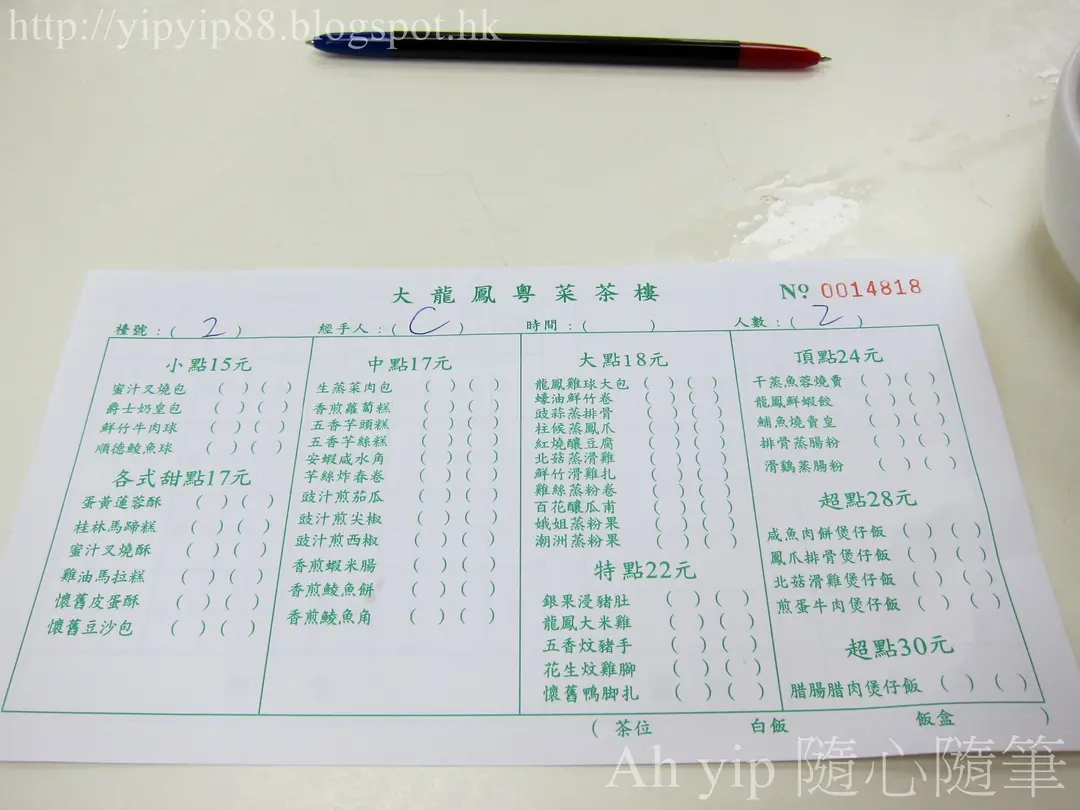 http://yipyip88.blogspot.hk
大龍鳳粵菜茶樓
Nº 0014818
檯號：( 2 ) 經手人：( C ) 時間：( ) 人數：( 2 )
小點15元
蜜汁叉燒包 ( ) ( )
爵士奶皇包 ( ) ( )
鮮竹牛肉球 ( ) ( )
順德鯪魚球 ( ) ( )
各式甜點17元
蛋黃蓮蓉酥 ( ) ( )
桂林馬蹄糕 ( ) ( )
蜜汁叉燒酥 ( ) ( )
雞油馬拉糕 ( ) ( )
懷舊皮蛋酥 ( ) ( )
懷舊豆沙包 ( ) ( )
中點17元
生蒸菜肉包 ( ) ( )
香煎蘿蔔糕 ( ) ( )
五香芋頭糕 ( ) ( )
五香芋絲糕 ( ) ( )
安蝦咸水角 ( ) ( )
芋絲炸春卷 ( ) ( )
豉汁煎茄瓜 ( ) ( )
豉汁煎尖椒 ( ) ( )
豉汁煎西椒 ( ) ( )
香煎蝦米腸 ( ) ( )
香煎鯪魚餅 ( ) ( )
香煎鯪魚角 ( ) ( )
大點18元
龍鳳雞球大包 ( ) ( )
蠔油鮮竹卷 ( ) ( )
豉蒜蒸排骨 ( ) ( )
柱候蒸鳳爪 ( ) ( )
紅燒釀豆腐 ( ) ( )
北菇蒸滑雞 ( ) ( )
鮮竹滑雞扎 ( ) ( )
雞絲蒸粉卷 ( ) ( )
百花釀瓜甫 ( ) ( )
娥姐蒸粉果 ( ) ( )
潮洲蒸粉果 ( ) ( )
特點22元
銀果浸豬肚 ( ) ( )
龍鳳大米雞 ( ) ( )
五香炆豬手 ( ) ( )
花生炆雞腳 ( ) ( )
懷舊鴨脚扎 ( ) ( )
頂點24元
干蒸魚蓉燒賣 ( ) ( )
龍鳳鮮蝦餃 ( ) ( )
鯆魚燒賣皇 ( ) ( )
排骨蒸腸粉 ( ) ( )
滑鷄蒸腸粉 ( ) ( )
超點28元
咸魚肉餅煲仔飯 ( ) ( )
鳳爪排骨煲仔飯 ( ) ( )
北菇滑雞煲仔飯 ( ) ( )
煎蛋牛肉煲仔飯 ( ) ( )
超點30元
腊腸腊肉煲仔飯 ( ) ( )
( 茶位 白飯 飯盒 )
Ah yip 隨心隨筆